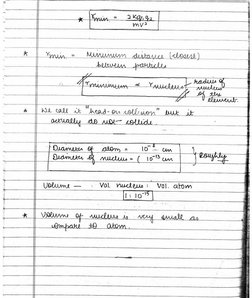 * r min. = 2Kq1q2 / mv²
* r min. = Minimum distance (closest)
between particles
r minimum ∝ r nucleus
radius of
nucleus
of the
element.
* We call it "head-on collision" but it
actually do not collide.
Diameter of atom = 10⁻⁸ cm
Diameter of nucleus = ( 10⁻¹³ cm
} Roughly
Volume — : Vol. nucleus : Vol. atom
1 : 10⁻¹⁵
* Volume of nucleus is very small as
compare to atom.